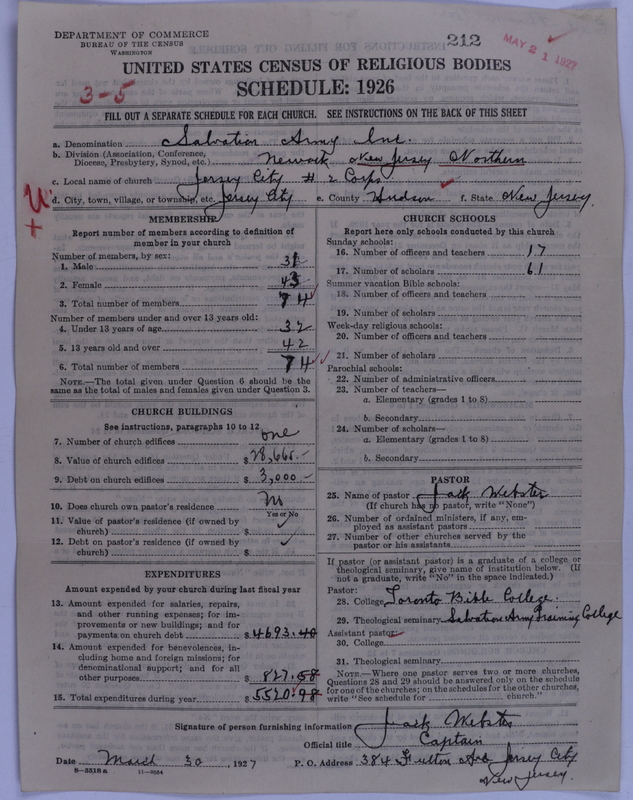 DEPARTMENT OF COMMERCE
BUREAU OF THE CENSUS
WASHINGTON
212
MAY 21 1927
UNITED STATES CENSUS OF RELIGIOUS BODIES
3-5
SCHEDULE: 1926
FILL OUT A SEPARATE SCHEDULE FOR EACH CHURCH. SEE INSTRUCTIONS ON THE BACK OF THIS SHEET
a. Denomination Salvation Army Inc.
b. Division (Association, Conference, Diocese, Presbytery, Synod, etc.) Newark New Jersey Northern
c. Local name of church Jersey City # 2 Corps
d. City, town, village, or township, etc. Jersey City e. County Hudson f. State New Jersey.
MEMBERSHIP
Report number of members according to definition of
member in your church
Number of members, by sex:
1. Male 31
2. Female 43
3. Total number of members 74
Number of members under and over 13 years old:
4. Under 13 years of age 32
5. 13 years old and over 42
6. Total number of members 74
NOTE.—The total given under Question 6 should be the
same as the total of males and females given under Question 3.
CHURCH BUILDINGS
See instructions, paragraphs 10 to 12
7. Number of church edifices one
8. Value of church edifices $28,665.-
9. Debt on church edifices $3,000.-
10. Does church own pastor's residence
Yes or No
11. Value of pastor's residence (if owned by
church) $
12. Debt on pastor's residence (if owned by
church) $
EXPENDITURES
Amount expended by your church during last fiscal year
13. Amount expended for salaries, repairs,
and other running expenses; for im-
provements or new buildings; and for
payments on church debt $4693.40
14. Amount expended for benevolences, in-
cluding home and foreign missions; for
denominational support; and for all
other purposes $827.58
15. Total expenditures during year $5520.98
CHURCH SCHOOLS
Report here only schools conducted by this church
Sunday schools:
16. Number of officers and teachers 17
17. Number of scholars 61
Summer vacation Bible schools:
18. Number of officers and teachers
19. Number of scholars
Week-day religious schools:
20. Number of officers and teachers
21. Number of scholars
Parochial schools:
22. Number of administrative officers
23. Number of teachers—
a. Elementary (grades 1 to 8)
b. Secondary
24. Number of scholars—
a. Elementary (grades 1 to 8)
b. Secondary
PASTOR
25. Name of pastor Jack Webster
(If church has no pastor, write "None")
26. Number of ordained ministers, if any, em-
ployed as assistant pastors
27. Number of other churches served by the
pastor or his assistants
If pastor (or assistant pastor) is a graduate of a college or
theological seminary, give name of institution below. (If
not a graduate, write "No" in the space indicated.)
Pastor:
28. College Toronto Bible College.
29. Theological seminary Salvation Army Training College
Assistant pastor:
30. College
31. Theological seminary
NOTE.—Where one pastor serves two or more churches,
Questions 28 and 29 should be answered only on the schedule
for one of the churches; on the schedules for the other churches,
write "See schedule for church."
Signature of person furnishing information Jack Webster
Official title Captain
Date March 30, 1927 P. O. Address 384 Fulton Ave Jersey City
New Jersey.
8-3518a 11-9554